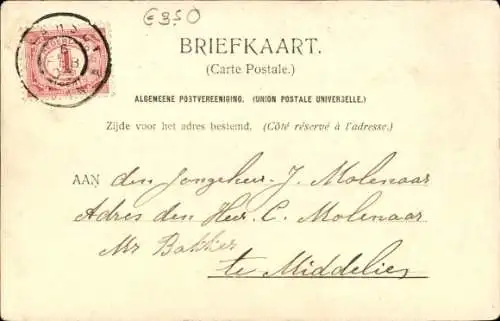 €350
BRIEFKAART.
(Carte Postale.)
ALGEMEENE POSTVEREENIGING. (UNION POSTALE UNIVERSELLE.)
Zijde voor het adres bestemd. (Côté réservé à l'adresse.)
AAN den Jongeheer J. Molenaar
Adres den Heer C. Molenaar
Mr Bakker
te Middelies